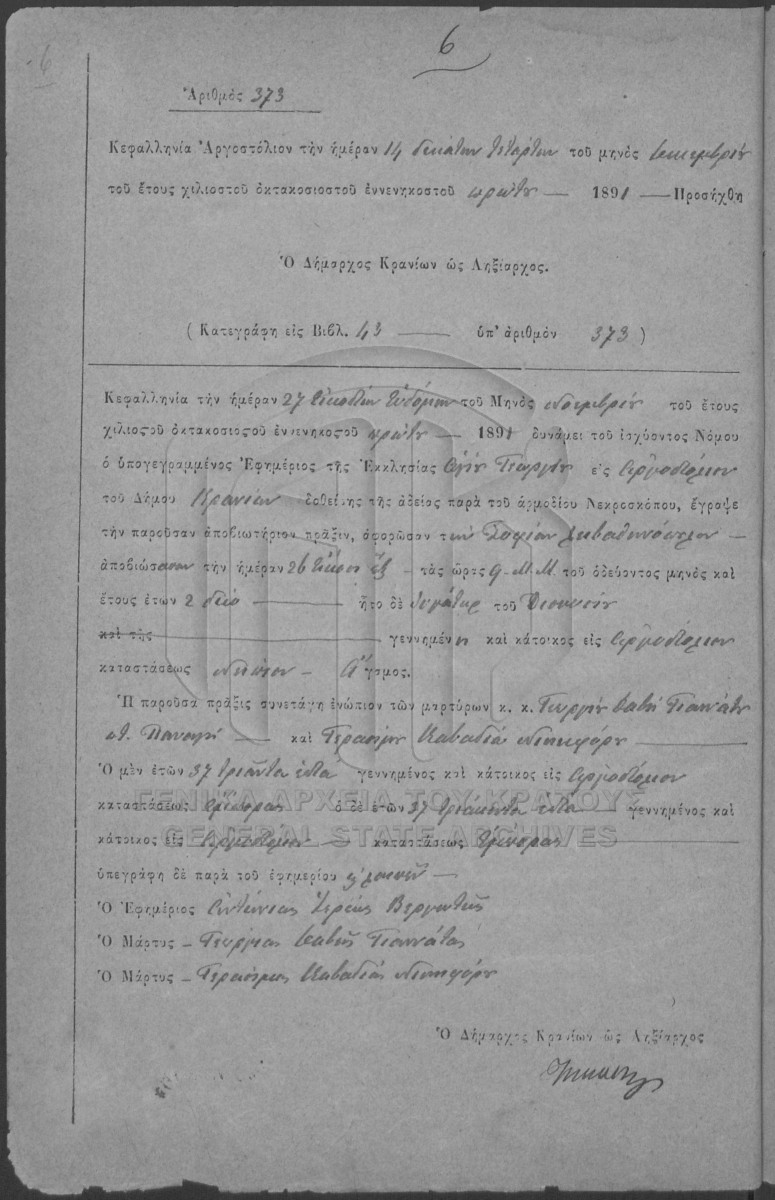 6
6
Ἀριθμὸς 373
Κεφαλληνία Ἀργοστόλιον τὴν ἡμέραν 14 δεκάτην τετάρτην τοῦ μηνὸς
τοῦ ἔτους χιλιοστοῦ ὀκτακοσιοστοῦ ἐννενηκοστοῦ πρώτου — 1891 — Προσήχθη
Ὁ Δήμαρχος Κρανίων ὡς Ληξίαρχος.
( Κατεγράφη εἰς Βιβλ. 43 — ὑπ' ἀριθμὸν 373 )
Κεφαλληνία τὴν ἡμέραν 27 εἰκοστὴν ἑβδόμην τοῦ Μηνὸς Νοεμβρίου τοῦ ἔτους
χιλιοςοῦ ὀκτακοσιοςοῦ ἐννενηκοςοῦ πρώτου — 1891 δυνάμει τοῦ ἰσχύοντος Νόμου
ὁ ὑπογεγραμμένος Ἐφημέριος τῆς Ἐκκλησίας Ἁγίου Γεωργίου εἰς Ἀργοστόλιον
τοῦ Δήμου Κρανίων δοθείσης τῆς ἀδείας παρὰ τοῦ ἁρμοδίου Νεκροσκόπου, ἔγραψε
τὴν παροῦσαν ἀποβιωτήριον πρᾶξιν, ἀφορῶσαν τὴν Σοφίαν —
ἀποβιώσασαν τὴν ἡμέραν 26 εἴκοσι ἓξ — τὰς ὥρας 9 Μ.Μ. τοῦ ὁδεύοντος μηνὸς καὶ
ἔτους ἐτῶν 2 δύο — ἦτο δὲ θυγάτηρ τοῦ Διονυσίου
καὶ τῆς — γεννημένη καὶ κάτοικος εἰς Ἀργοστόλιον
καταστάσεως νήπιον — Ἄγαμος.
Ἡ παροῦσα πρᾶξις συνετάγη ἐνώπιον τῶν μαρτύρων κ. κ. Γεωργίου Γιαννάτου
— καὶ Γερασίμου Καβαδία Νικηφόρου —
Ὁ μὲν ἐτῶν 37 τριάντα ἑπτὰ γεννημένος καὶ κάτοικος εἰς Ἀργοστόλιον
καταστάσεως ἔμπορας ὁ δὲ ἐτῶν 37 τριάκοντα ἑπτὰ — γεννημένος καὶ
κάτοικος εἰς Ἀργοστόλιον — καταστάσεως ἔμπορας —
ὑπεγράφη δὲ παρὰ τοῦ ἐφημερίου —
Ὁ Ἐφημέριος Ἀντώνιος Ἱερεὺς Βεργωτῆς
Ὁ Μάρτυς — Γεώργιος Γιαννάτος
Ὁ Μάρτυς — Γεράσιμος Καβαδίας Νικηφόρου
Ὁ Δήμαρχος Κρανίων ὡς Ληξίαρχος
ΓΕΝΙΚΑ ΑΡΧΕΙΑ ΤΟΥ ΚΡΑΤΟΥΣ
GENERAL STATE ARCHIVES